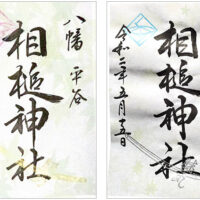 八幡 平谷
相槌神社
令和二年五月十五日
相槌神社